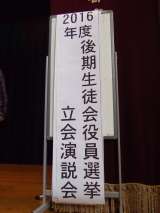 2016年度後期生徒会役員選挙
立会演説会